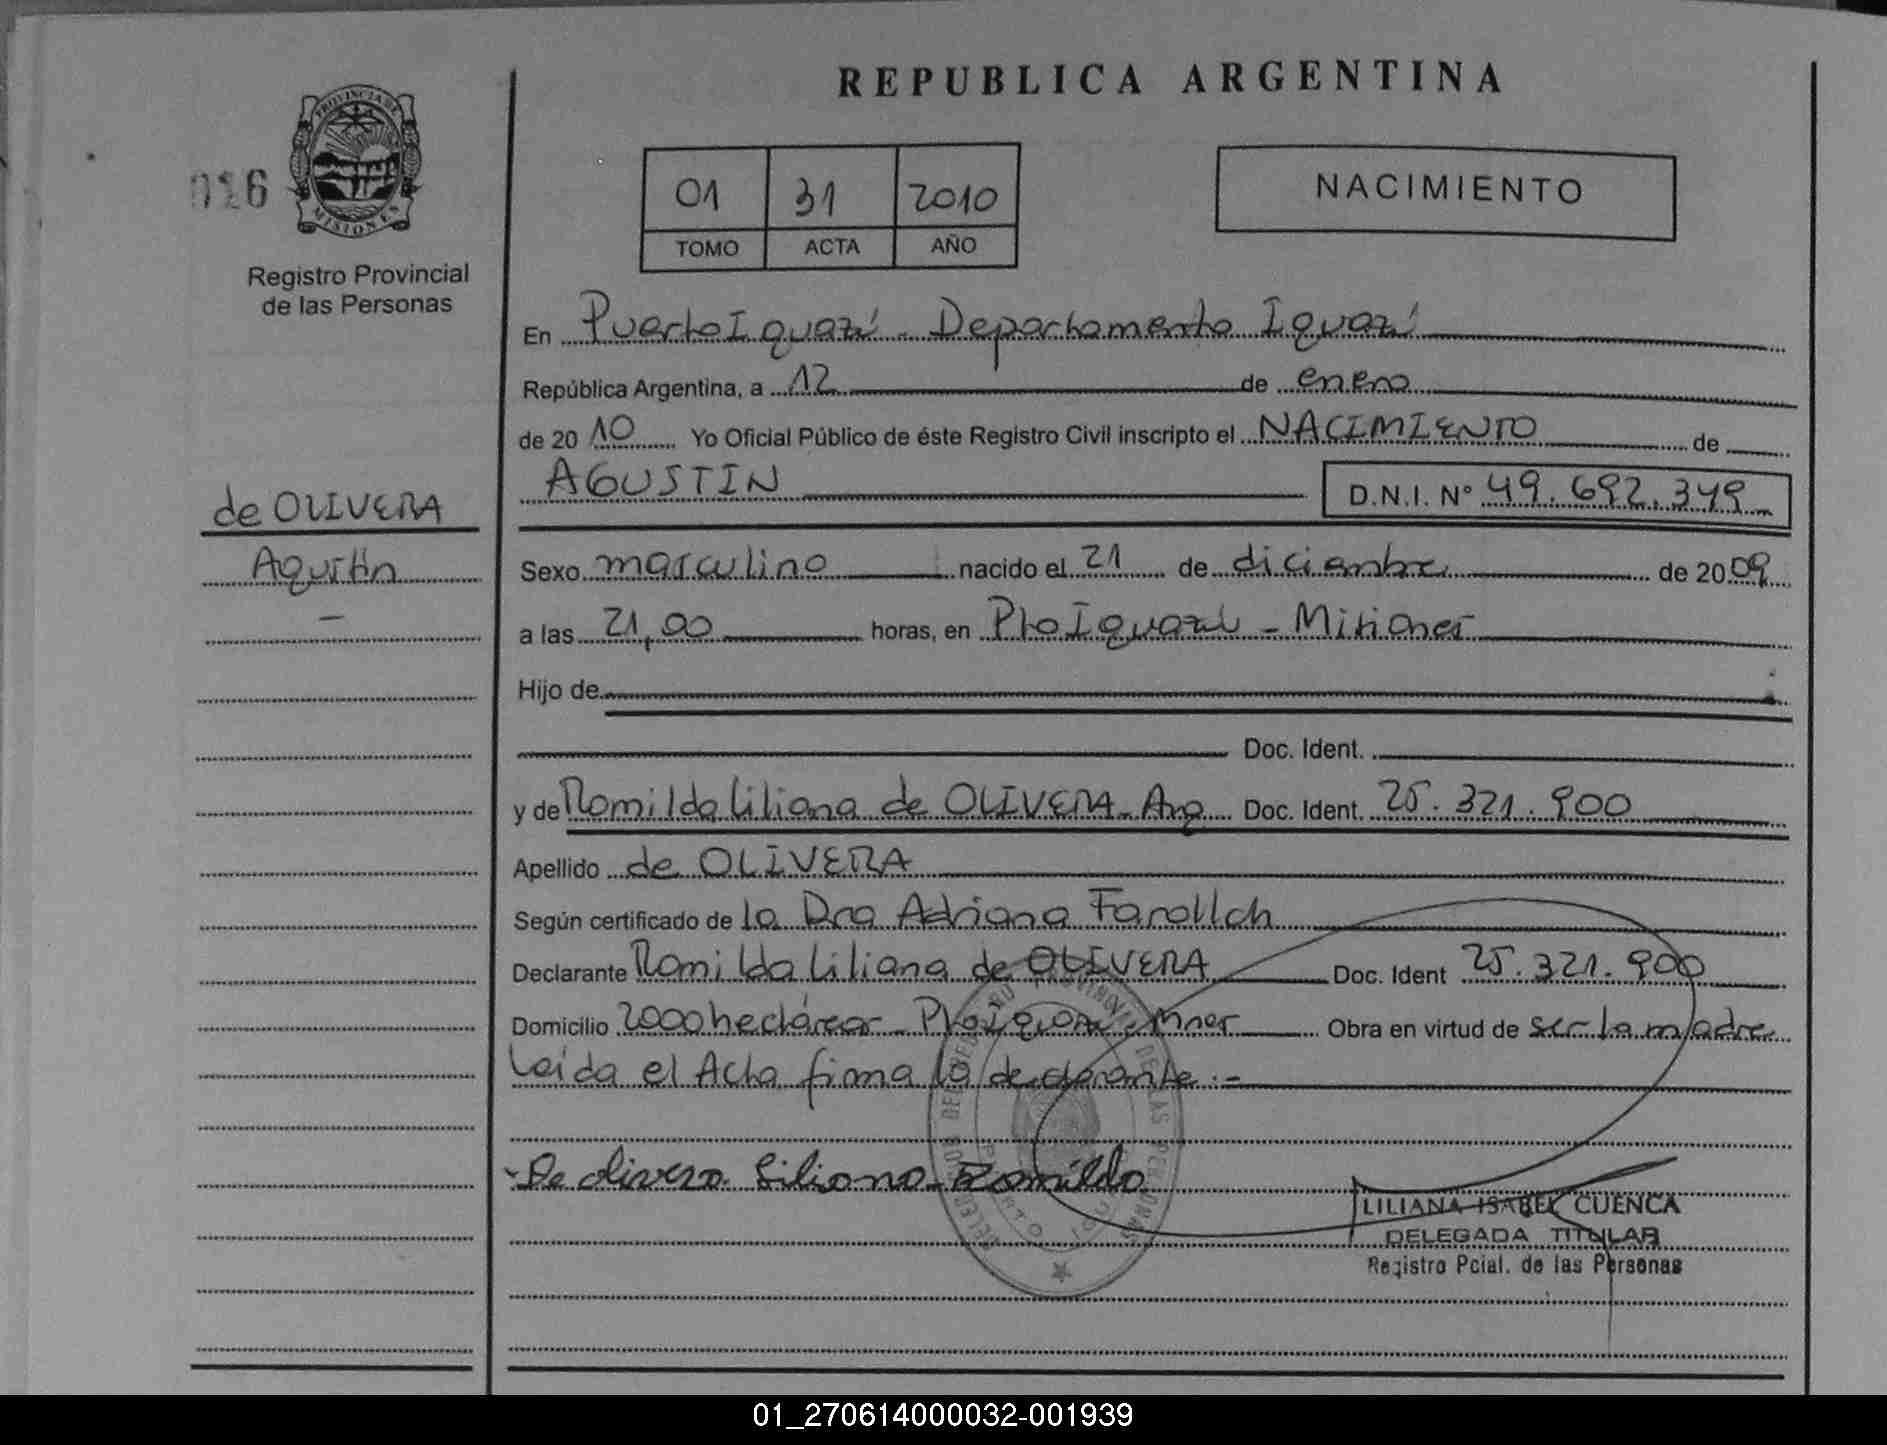 REPUBLICA ARGENTINA
PROVINCIA DE
MISIONES
016
Registro Provincial
de las Personas
01 31 2010
TOMO ACTA AÑO
NACIMIENTO
En Puerto Iguazú - Departamento Iguazú
República Argentina, a 12 de enero
de 2010 Yo Oficial Público de éste Registro Civil inscripto el NACIMIENTO de
AGUSTIN D.N.I. N° 49.692.349
de OLIVERA
Agustín
-
Sexo masculino nacido el 21 de diciembre de 2009
a las 21,00 horas, en Pto Iguazú - Misiones
Hijo de
Doc. Ident.
y de Romilda Liliana de OLIVERA - Arg Doc. Ident. 25.321.900
Apellido de OLIVERA
Según certificado de la Dra Adriana
Declarante Romilda Liliana de OLIVERA Doc. Ident 25.321.900
Domicilio 2000 hectáreas - Pto Iguazú - Mnes Obra en virtud de ser la madre
Leída el Acta firma la declarante.-
De Olivera Liliana Romilda
LILIANA ISABEL CUENCA
DELEGADA TITULAR
Registro Pcial. de las Personas
01_270614000032-001939